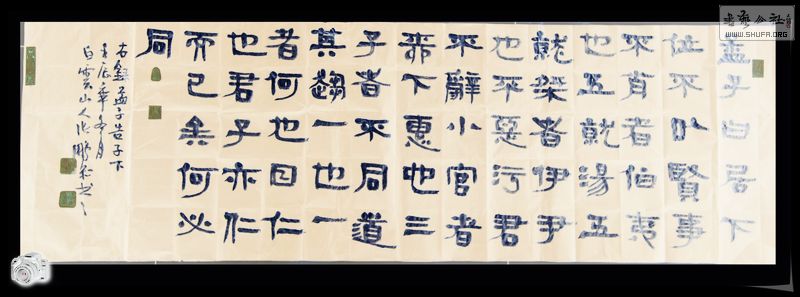 孟子曰居下
位不以賢事
不肖者伯夷
也五就湯五
就桀者伊尹
也不惡污君
不辭小官者
柳下惠也三
子者不同道
其趨一也一
者何也曰仁
也君子亦仁
而已矣何必
同
右錄孟子告子下
壬辰年冬月
白雲山人
书艺公社
WWW.SHUFA.ORG